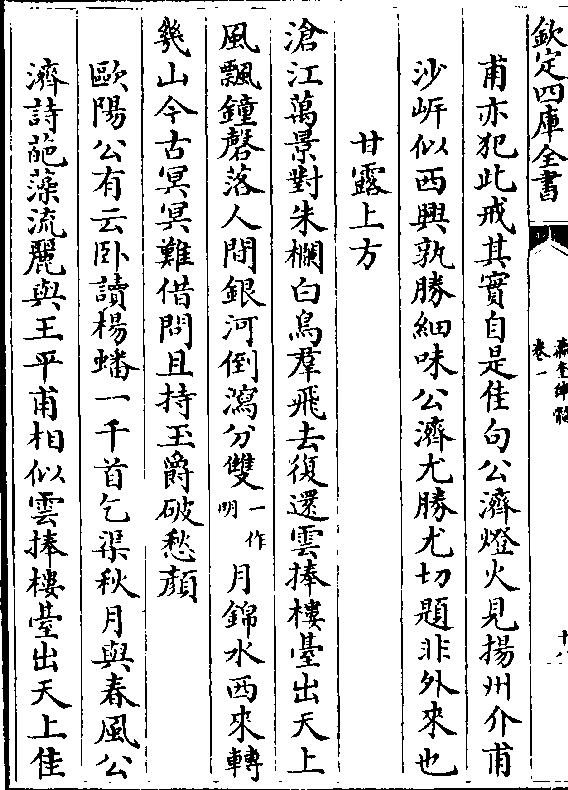 欽定四庫全書
卷一
甫亦犯此戒其實自是佳句公濟燈火見揚州介甫
沙㟁似西興孰勝細味公濟尤勝尤切題非外來也
甘露上方
滄江萬景對朱欄白鳥羣飛去復還雲捧樓臺出天上
風飄鐘磬落人間銀河倒瀉分雙一作明月錦水西來轉
幾山今古冥冥難借問且持玉爵破愁顔
歐陽公有云卧讀楊蟠一千首乞渠秋月與春風公
濟詩葩藻流麗與王平甫相似雲捧樓臺出天上佳